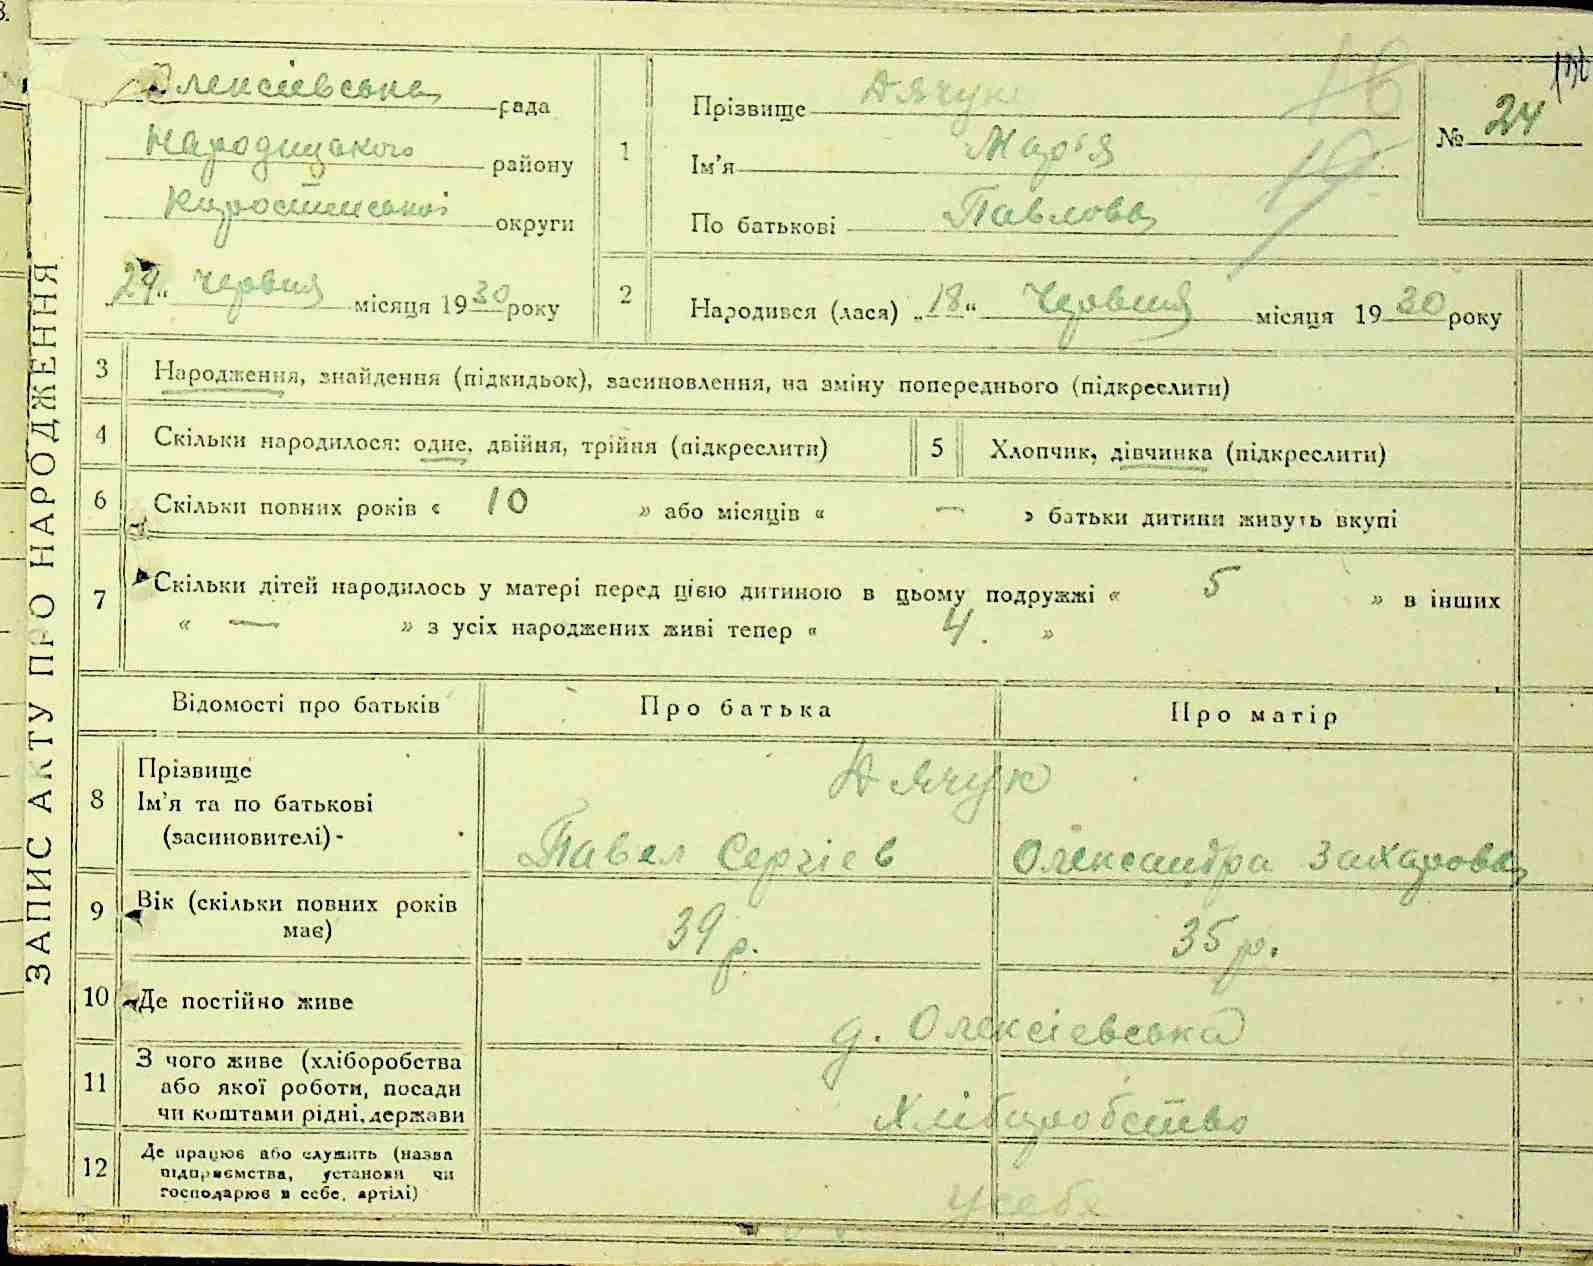 ЗАПИС АКТУ ПРО НАРОДЖЕННЯ
Олексієвська рада
Народицького району
Коростенської округи
„24“ червня місяця 1930 року
1
Прізвище Дячук
Ім'я Мар'я
По батькові Павлова
№ 24
2
Народився (лася) „18“ Червня місяця 1930 року
3 Народження, знайдення (підкидьок), засиновлення, на зміну попереднього (підкреслити)
4 Скільки народилося: одне, двійня, трійня (підкреслити)
5 Хлопчик, дівчинка (підкреслити)
6 Скільки повних років « 10 » або місяців « — » батьки дитини живуть вкупі
7 Скільки дітей народилось у матері перед цією дитиною в цьому подружжі « 5 » в інших
« — » з усіх народжених живі тепер « 4. »
Відомості про батьків Про батька Про матір
8 Прізвище
Ім'я та по батькові
(засиновителі) -
Дячук
Павел Сергієв Олександра Захарова
9 Вік (скільки повних років
має)
39 р. 35 р.
10 Де постійно живе
д. Олексієвська
11 З чого живе (хліборобства
або якої роботи, посади
чи коштами рідні, держави
Хліборобство
12 Де працює або служить (назва
підприємства, установи чи
господарює в себе, артілі)
у себе